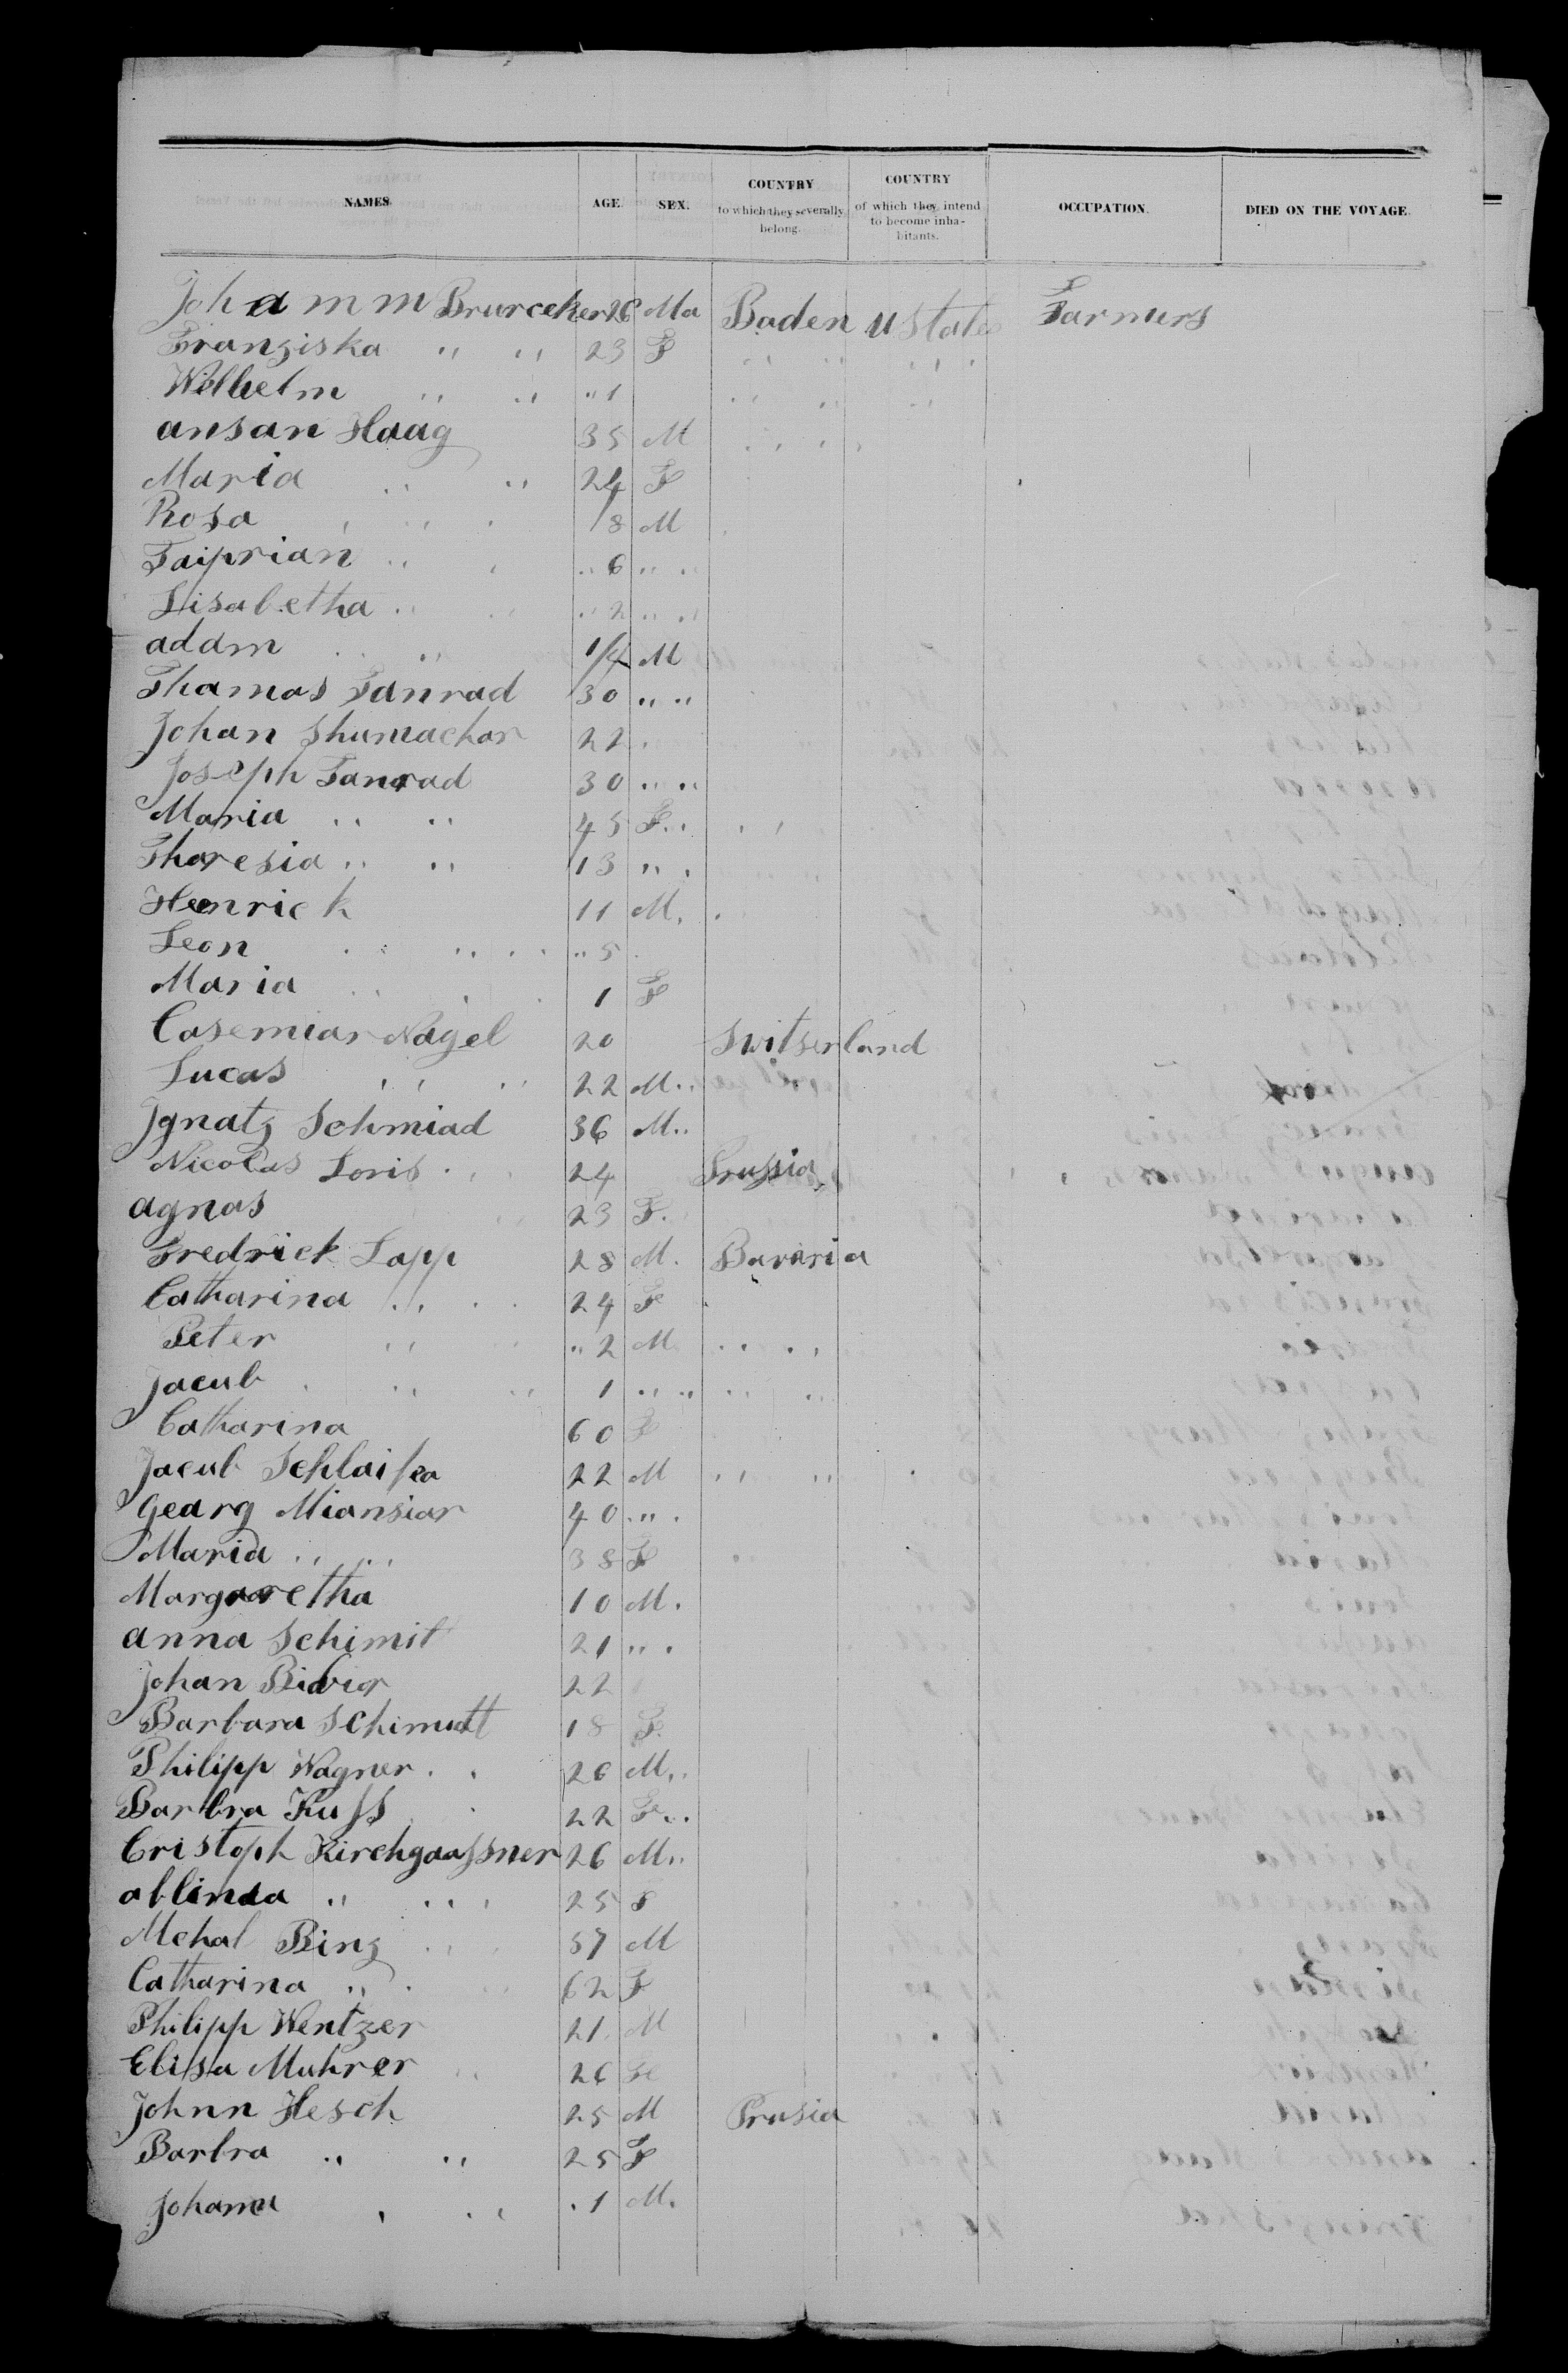 NAMES. AGE. SEX. COUNTRY to which they severally belong. COUNTRY of which they intend to become inhabitants. OCCUPATION. DIED ON THE VOYAGE.
Johamm Brurceker 26 Ma Baden U States Farmers
Franziska " " 23 F " " " "
Wilhelm " " " 1 " " "
ansan Haag 35 M " "
Maria " " 24 F
Rosa " " 8 M
Taiprian " " " 6 " "
Lisabetha " " " 2 " "
adam " 1/4 M
Thamas Tanrad 30 " "
Johan Shumachar 22 "
Joseph Tanrad 30 " "
Maria " " 45 F " " "
Tharesia " " 13 " "
Henrick 11 M.
Leon " " " 5
Maria " " 1 F
Casemiar Nagel 20 Switserland
Lucas " " 22 M "
Ignatz Schmiad 36 M "
Nicolas Loris 24 Prussia
agnas 23 F.
Fredrick Lapp 28 M. Bavaria
Catharina " " 24 Fe
Peter " " 2 M " "
Jacub " " 1 " " " "
Catharina 60 F
Jacub 22 M " "
Gearg Miansiar 40 "
Maria " " 38 F
Margaretha 10 M.
anna Schimit 21 "
Johan 22
Barbara Schimidt 18 F.
Philipp Wagner 26 M "
Barbra Kuss 22 Fe "
Cristoph Kirchgassner 26 M "
ablinda " " 25 F
Mchal Bing 57 M
Catharina " 62 F
Philipp Wentzer 21 M
Elisa Muhrer 26 Fe
Johnn Hesch 25 M Prusia
Barbra " " 25 F
Johana " " 1 M.